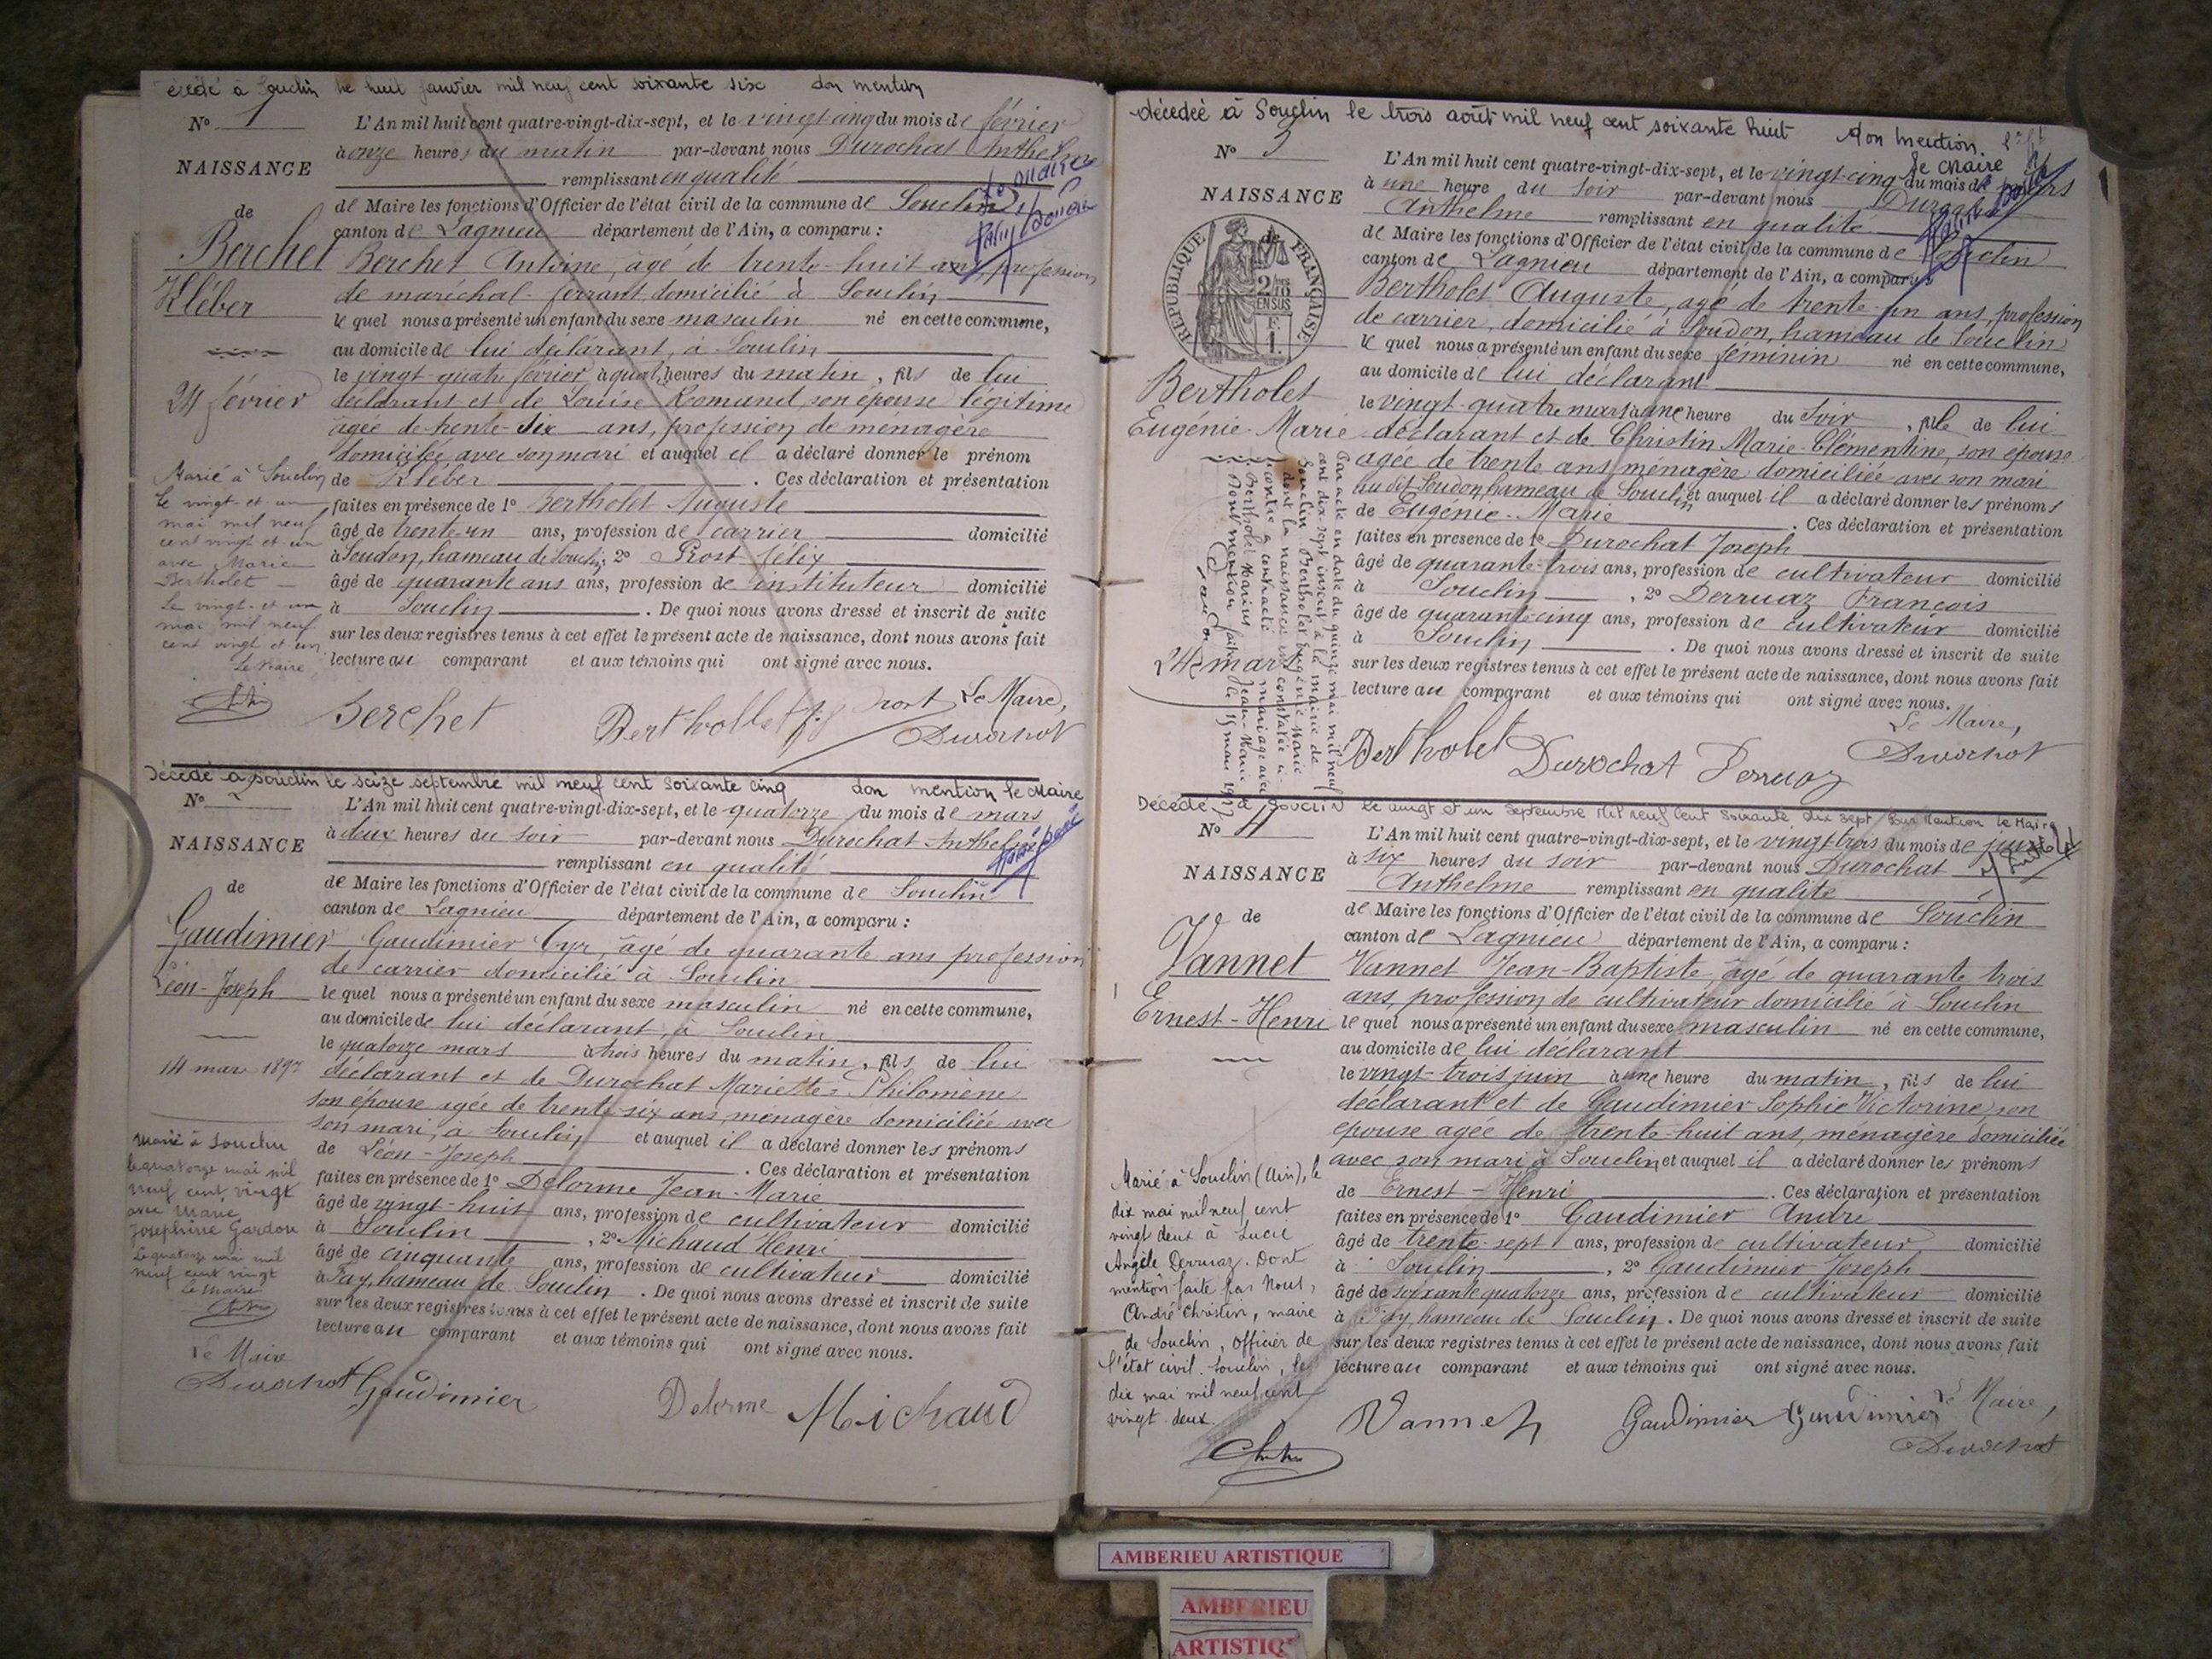 décédé à Souclin le huit janvier mil neuf cent soixante six don mention
N° 1
NAISSANCE
de
Berchet
Kléber
24 février
L'An mil huit cent quatre-vingt-dix-sept, et le vingt-cinq du mois de février
à onze heures du matin par-devant nous Durochat Anthelme
remplissant en qualité
de Maire les fonctions d'Officier de l'état civil de la commune de Souclin
canton de Lagnieu département de l'Ain, a comparu :
Berchet Antoine, âgé de trente-huit ans, profession
de maréchal-ferrant, domicilié à Souclin
le quel nous a présenté un enfant du sexe masculin né en cette commune,
au domicile de lui déclarant, à Souclin
le vingt-quatre février à quat. heures du matin, fils de lui
déclarant et de Louise Romand, son épouse légitime
âgée de trente-six ans, profession de ménagère
domiciliée avec son mari et auquel il a déclaré donner le prénom
de Kléber . Ces déclaration et présentation
faites en présence de 1° Bertholet Auguste
âgé de trente-un ans, profession de carrier domicilié
à Soudon, hameau de Souclin, 2° Prost Félix
âgé de quarante ans ans, profession de instituteur domicilié
à Souclin . De quoi nous avons dressé et inscrit de suite
sur les deux registres tenus à cet effet le présent acte de naissance, dont nous avons fait
lecture au comparant et aux témoins qui ont signé avec nous.
Marié à Souclin
le vingt-et-un
mai mil neuf
cent vingt et un
avec Marie
Bertholet
Le vingt-et-un
mai mil neuf
cent vingt et un
Le Maire
Berchet Berthollet Prost Le Maire,
Durochat
Décédé à Souclin le seize septembre mil neuf cent soixante cinq don mention le Maire
N° 2
NAISSANCE
de
Gaudimier
Léon-Joseph
14 mars 1897
L'An mil huit cent quatre-vingt-dix-sept, et le quatorze du mois de mars
à deux heures du soir par-devant nous Durochat Anthelme
remplissant en qualité
de Maire les fonctions d'Officier de l'état civil de la commune de Souclin
canton de Lagnieu département de l'Ain, a comparu :
Gaudimier Cyr, âgé de quarante ans profession
de carrier domicilié à Souclin
le quel nous a présenté un enfant du sexe masculin né en cette commune,
au domicile de lui déclarant, à Souclin
le quatorze mars à trois heures du matin, fils de lui
déclarant et de Durochat Mariette Philomène
son épouse âgée de trente-six ans, ménagère domiciliée avec
son mari, à Souclin et auquel il a déclaré donner les prénoms
de Léon-Joseph . Ces déclaration et présentation
faites en présence de 1° Delorme Jean-Marie
âgé de vingt-huit ans, profession de cultivateur domicilié
à Souclin , 2° Michaud Henri
âgé de cinquante ans, profession de cultivateur domicilié
à Fay, hameau de Souclin . De quoi nous avons dressé et inscrit de suite
sur les deux registres tenus à cet effet le présent acte de naissance, dont nous avons fait
lecture au comparant et aux témoins qui ont signé avec nous.
Marié à Souclin
le quatorze mai mil
neuf cent vingt
avec Marie
Joséphine Gardon
Le quatorze mai mil
neuf cent vingt
Le Maire
Le Maire
Durochat Gaudimier Delorme Michaud
décédée à Souclin le trois août mil neuf cent soixante huit don mention
le Maire
N° 3
NAISSANCE
de
REPUBLIQUE FRANÇAISE
2/10 EN SUS
F. 1.
Bertholet
Eugénie-Marie
24 mars
L'An mil huit cent quatre-vingt-dix-sept, et le vingt-cinq du mois de mars
à une heure du soir par-devant nous Durochat
Anthelme remplissant en qualité
de Maire les fonctions d'Officier de l'état civil de la commune de Souclin
canton de Lagnieu département de l'Ain, a comparu
Bertholet Auguste, âgé de trente-un ans, profession
de carrier, domicilié à Soudon, hameau de Souclin
le quel nous a présenté un enfant du sexe féminin né en cette commune,
au domicile de lui déclarant
le vingt-quatre mars à une heure du soir, fille de lui
déclarant et de Christin Marie-Clémentine, son épouse
âgée de trente ans, ménagère domiciliée avec son mari
au dit Soudon, hameau de Souclin et auquel il a déclaré donner les prénoms
de Eugénie-Marie . Ces déclaration et présentation
faites en présence de 1° Durochat Joseph
âgé de quarante-trois ans, profession de cultivateur domicilié
à Souclin , 2° Derruaz François
âgé de quarante-cinq ans, profession de cultivateur domicilié
à Souclin . De quoi nous avons dressé et inscrit de suite
sur les deux registres tenus à cet effet le présent acte de naissance, dont nous avons fait
lecture au comparant et aux témoins qui ont signé avec nous.
Par acte en date du quinze mai mil neuf
cent dix-sept inscrit à la mairie de
Souclin Bertholet Eugénie Marie
dont la naissance est constatée ci-
contre a contracté mariage avec
Bertholet Marius Jean-Marie
Dont mention faite le
Le Maire,
Bertholet Durochat Derruaz Durochat
Décédé à SOUCLIN Le vingt et un Septembre Mil neuf Cent Soixante dix sept Pour Mention le Maire
N° 4
NAISSANCE
de
Vannet
Ernest-Henri
L'An mil huit cent quatre-vingt-dix-sept, et le vingt-trois du mois de juin
à six heures du soir par-devant nous Durochat
Anthelme remplissant en qualité
de Maire les fonctions d'Officier de l'état civil de la commune de Souclin
canton de Lagnieu département de l'Ain, a comparu :
Vannet Jean-Baptiste, âgé de quarante trois
ans, profession de cultivateur domicilié à Souclin
le quel nous a présenté un enfant du sexe masculin né en cette commune,
au domicile de lui déclarant
le vingt-trois juin à une heure du matin, fils de lui
déclarant et de Gaudimier Sophie Victorine, son
épouse âgée de trente-huit ans, ménagère domiciliée
avec son mari à Souclin et auquel il a déclaré donner les prénoms
de Ernest-Henri . Ces déclaration et présentation
faites en présence de 1° Gaudimier André
âgé de trente-sept ans, profession de cultivateur domicilié
à Souclin , 2° Gaudimier Joseph
âgé de soixante quatorze ans, profession de cultivateur domicilié
à Fay, hameau de Souclin . De quoi nous avons dressé et inscrit de suite
sur les deux registres tenus à cet effet le présent acte de naissance, dont nous avons fait
lecture au comparant et aux témoins qui ont signé avec nous.
Marié à Souclin (Ain), le
dix mai mil neuf cent
vingt deux à Lucie
Angèle Derruaz. Dont
mention faite par Nous,
André Christin, maire
de Souclin, officier de
l'état civil. Souclin, le
dix mai mil neuf cent
vingt deux.
Vannet Gaudimier Gaudimier Le Maire,
Durochat
AMBERIEU ARTISTIQUE
AMBERIEU
ARTISTIQ